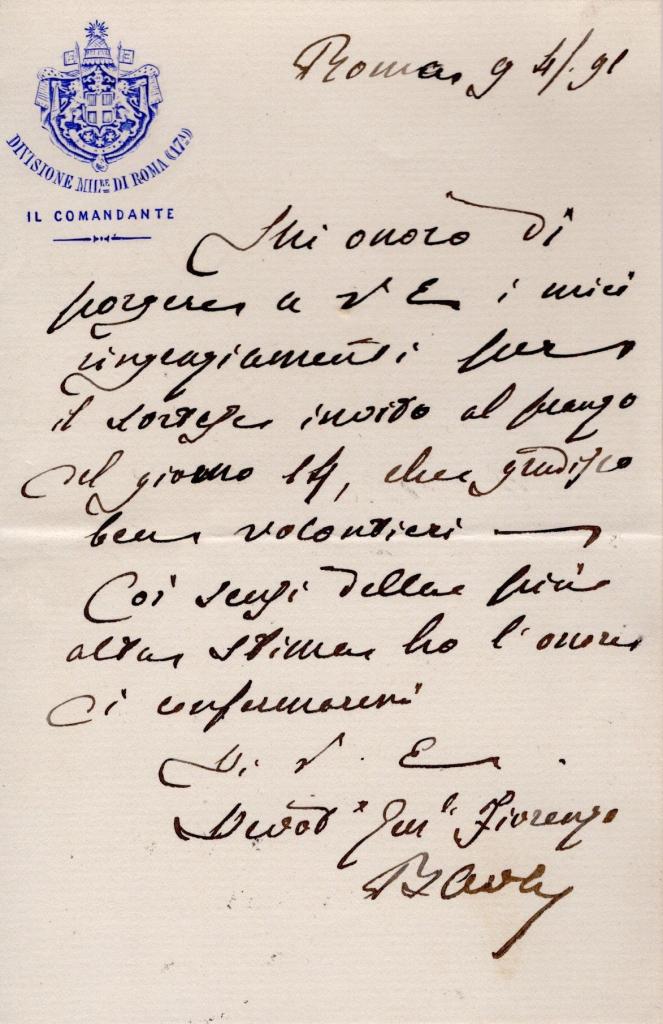 Roma 9 4/. 91
DIVISIONE MILRE DI ROMA (17ª)
IL COMANDANTE
Mi onoro di
porgere a V E i miei
ringraziamenti per
il cortese invito al pranzo
del giorno 14, che gradisco
ben volontieri —
Coi sensi della più
alta stima ho l'onore
di confermarmi
Di V. E.
Fiorenzo
Bava